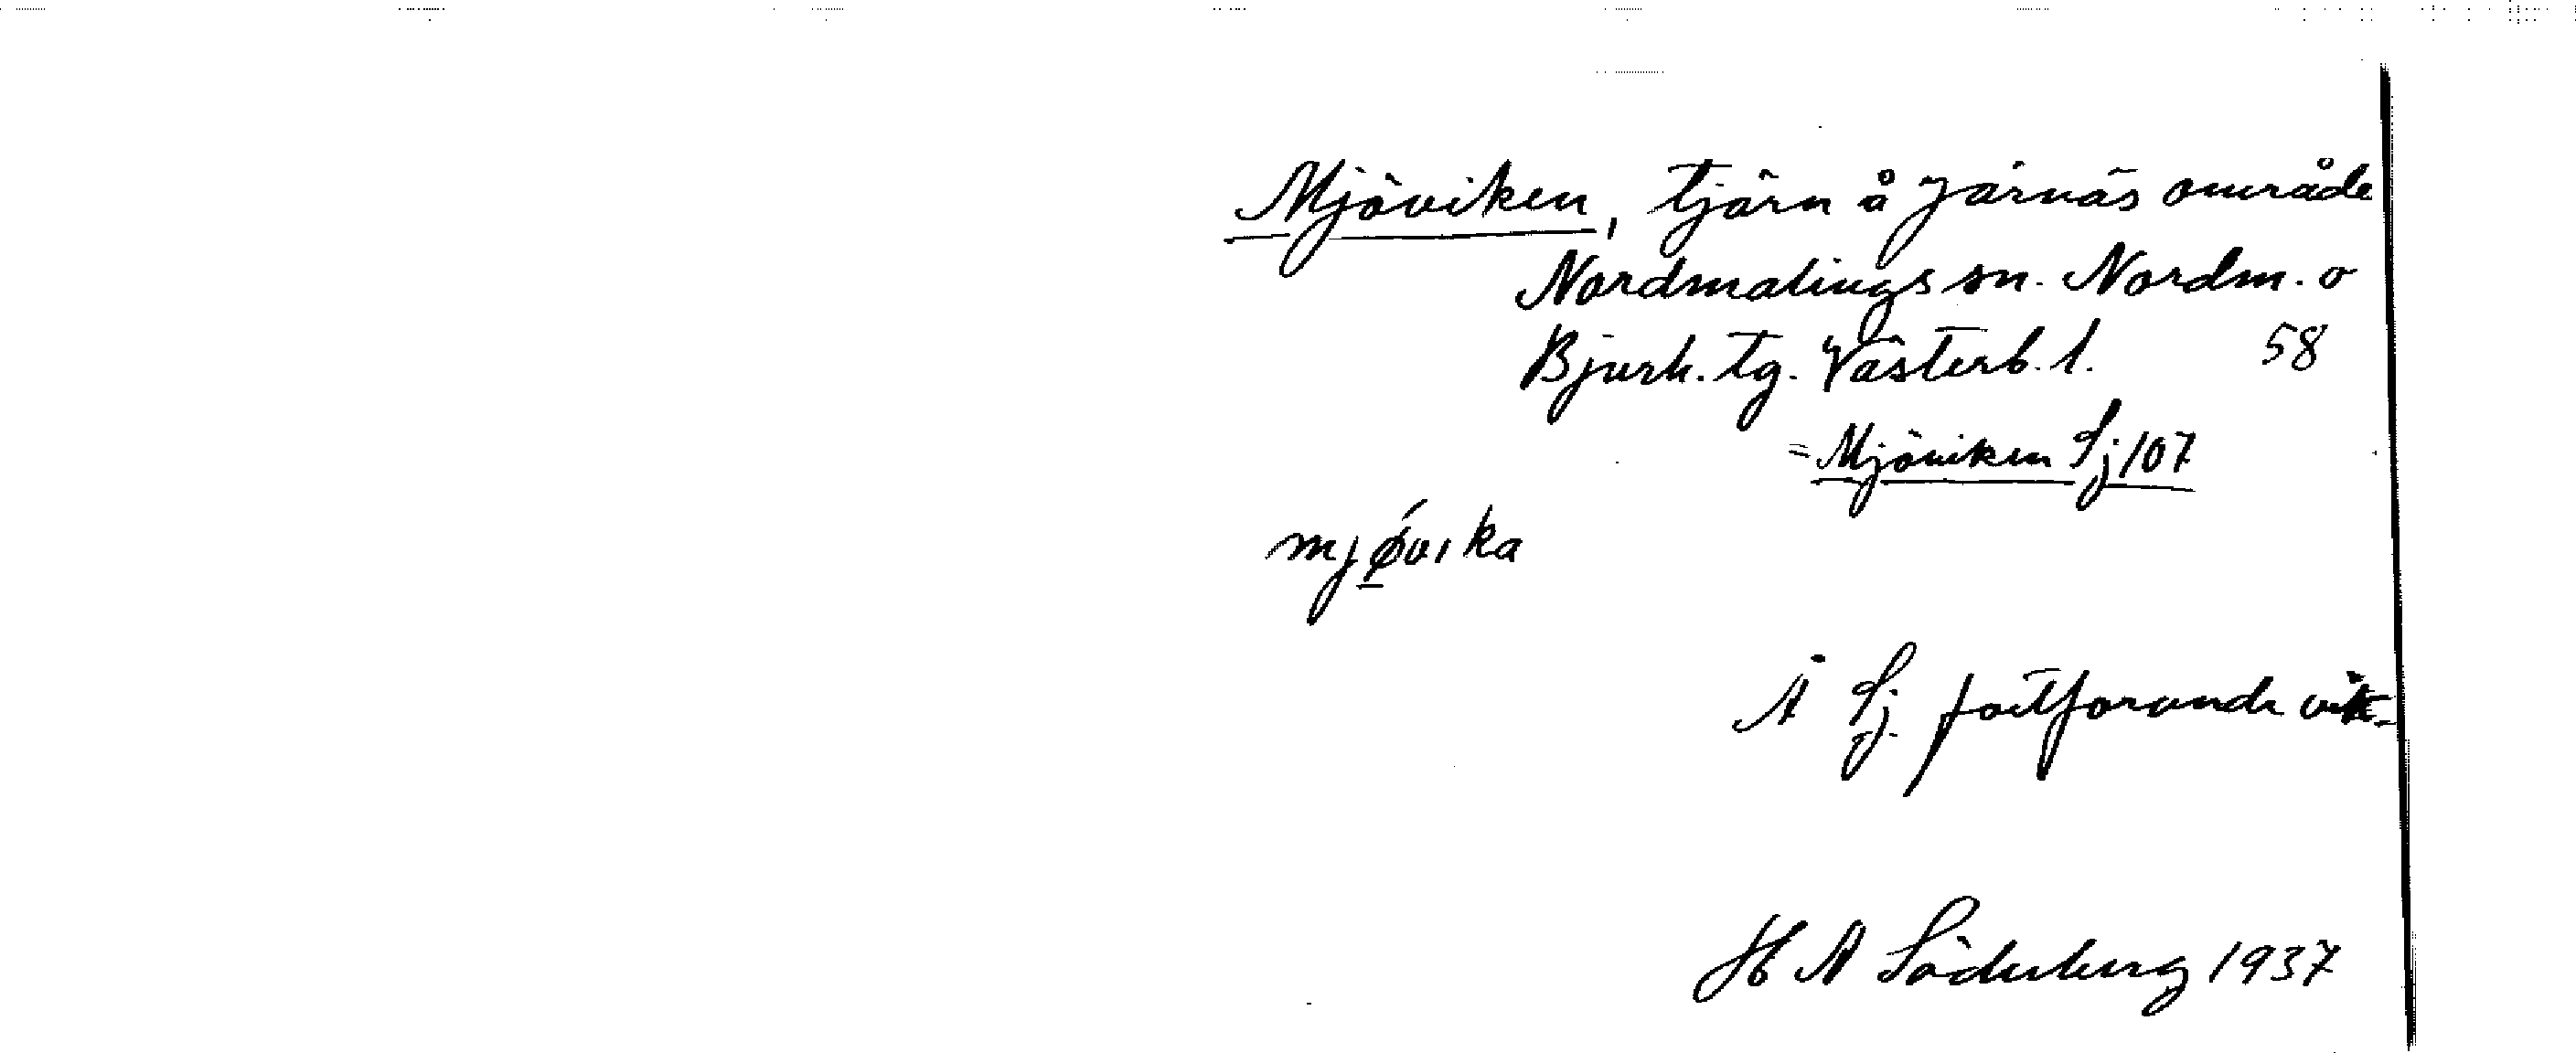 Mjöviken, tjärn å Järnäs område
Nordmalings sn. Nordm. o
Bjurh. tg. Västerb. l. 58
= Mjöviken Sj 107
mjǿvika
Å Sj. fortfarande vik
H A Söderberg 1937